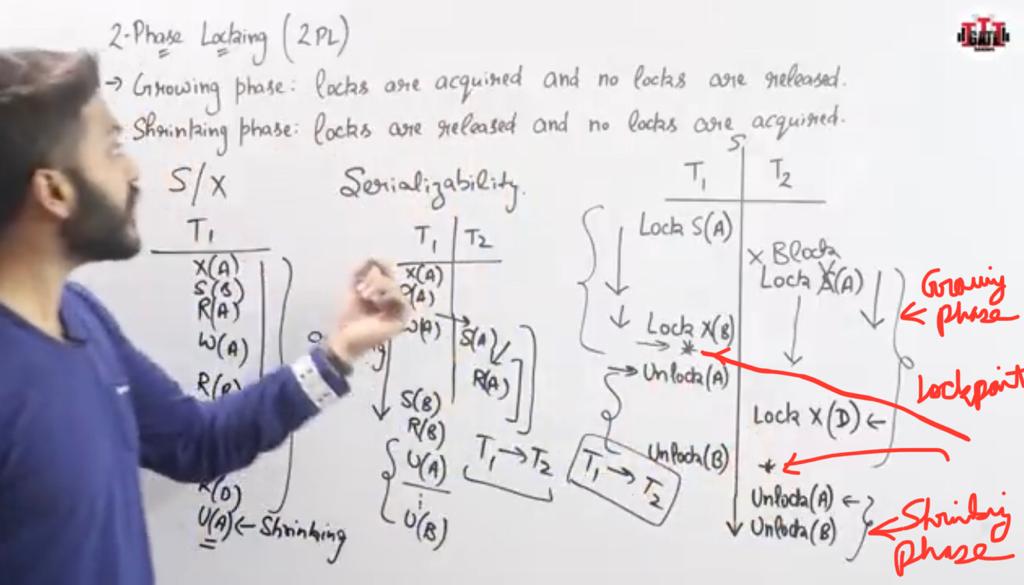 2-Phase Locking (2PL)
→ Growing phase: locks are acquired and no locks are released.
Shrinking phase: locks are released and no locks are acquired.
S/X
T1
X(A)
S(B)
R(A)
W(A)
U(A) ← Shrinking
Serializability.
T1 T2
X(A)
W(A)
S(A)
R(A)
S(B)
R(B)
U(A)
U(B)
T1 → T2
S
T1 T2
Lock S(A)
X Block
Lock X(A)
Lock X(B)
→ *
→ Unlock(A)
Lock X(D) ←
Unlock(B)
*
Unlock(A) ←
Unlock(B)
T1 → T2
Growing
phase
Lock point
Shrinking
phase
GATE